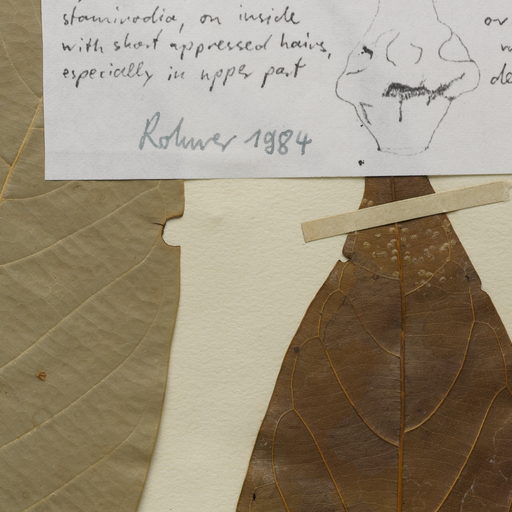 staminodia, on inside
with short appressed hairs,
especially in upper part
or
de
Rohwer 1984